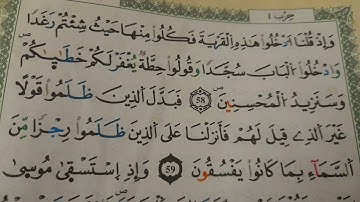 حزب 1
وَإِذْ قُلْنَا ادْخُلُوا هَٰذِهِ الْقَرْيَةَ فَكُلُوا مِنْهَا حَيْثُ شِئْتُمْ رَغَدًا
وَادْخُلُوا الْبَابَ سُجَّدًا وَقُولُوا حِطَّةٌ يُغْفَرْ لَكُمْ خَطَٰيَٰكُمْ
وَسَنَزِيدُ الْمُحْسِنِينَ 58 فَبَدَّلَ الَّذِينَ ظَلَمُوا قَوْلًا
غَيْرَ الَّذِي قِيلَ لَهُمْ فَأَنزَلْنَا عَلَى الَّذِينَ ظَلَمُوا رِجْزًا مِّنَ
السَّمَآءِ بِمَا كَانُوا يَفْسُقُونَ 59 وَإِذِ اسْتَسْقَىٰ مُوسَىٰ